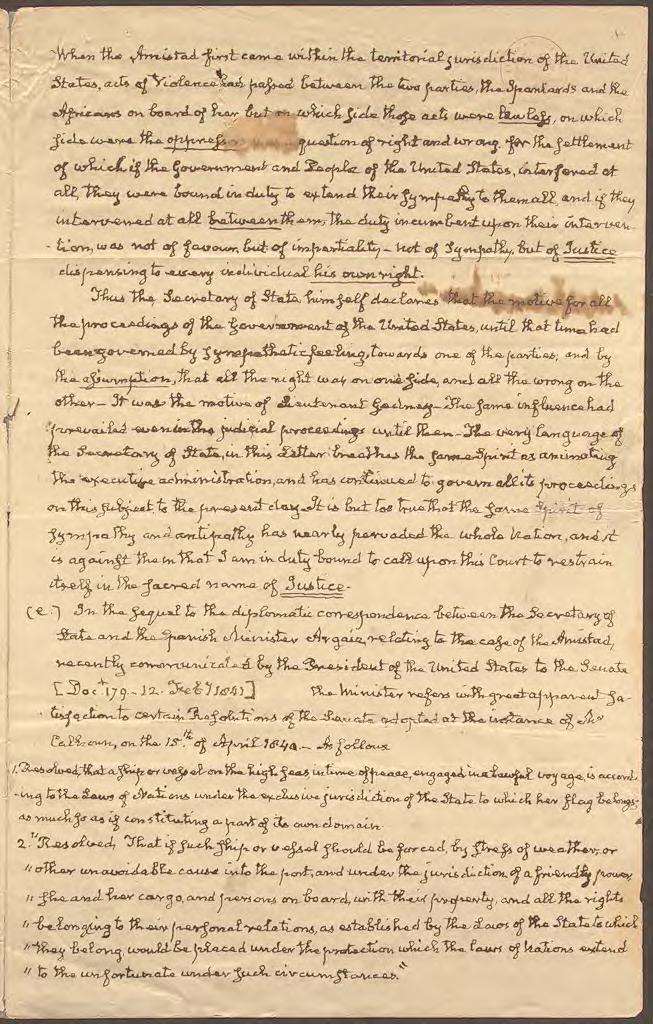 When the Amistad first came within the territorial jurisdiction of the United
States, acts of Violence had passed between the two parties, the Spaniards and the
Africans on board of her but on which side those acts were lawless, on which
side were the oppress question of right and wrong. for the settlement
of which if the Government and People of the United States, interfered at
all, they were bound in duty to extend their sympathy to them all, and if they
intervened at all between them, the duty incumbent upon their interven-
-tion, was not of favour, but of impartiality - not of Sympathy, but of Justice
dispensing to every individual his own right.
Thus the Secretary of State himself declares that the motive for all
the proceedings of the Government of the United States, until that time had
been governed by sympathetic feeling, towards one of the parties; and by
the assumption, that all the right was on one side, and all the wrong on the
other - It was the motive of Lieutenant Gedney - The same influence had
prevailed even in the judicial proceedings until then - The very language of
the Secretary of State, in this Letter breathes the same Spirit as animating
the executive administration, and has continued to govern all its proceedings
on this subject to the present day. It is but too true that the same spirit of
sympathy and antipathy has nearly pervaded the whole Nation, and it
is against them that I am in duty bound to call upon this Court to restrain
itself in the sacred name of Justice -
(e.) In the sequel to the diplomatic correspondence between the Secretary of
State and the Spanish Minister Argaiz, relating to the case of the Amistad,
recently communicated by the President of the United States to the Senate
[Doct 179 - 12. Feby 1841] the Minister refers with great apparent sa-
-tisfaction to certain Resolutions of the Senate adopted at the instance of Mr
Calhoun, on the 15th of April 1840 - As follows
1. Resolved, that a ship or vessel on the high seas, in time of peace, engaged in a lawful voyage, is accord-
-ing to the Laws of Nations under the exclusive jurisdiction of the State to which her flag belongs;
as much so as if constituting a part of its own domain.
2. "Resolved, That if such ship or vessel should be forced, by stress of weather, or
"other unavoidable cause into the port, and under the jurisdiction of a friendly power,
"she and her cargo, and persons on board, with their property, and all the rights
"belonging to their personal relations, as established by the Laws of the State to which
"they belong, would be placed under the protection which the laws of Nations extend
"to the unfortunate under such circumstances."